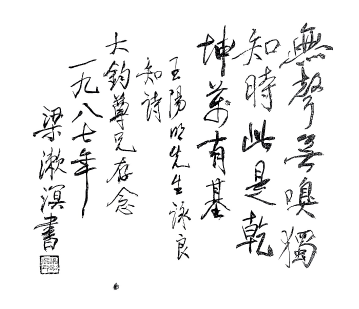 無聲無嗅獨
知時此是乾
坤萬有基
王陽明先生詠良
知詩
大鈞尊兄存念
一九八七年
梁漱溟書